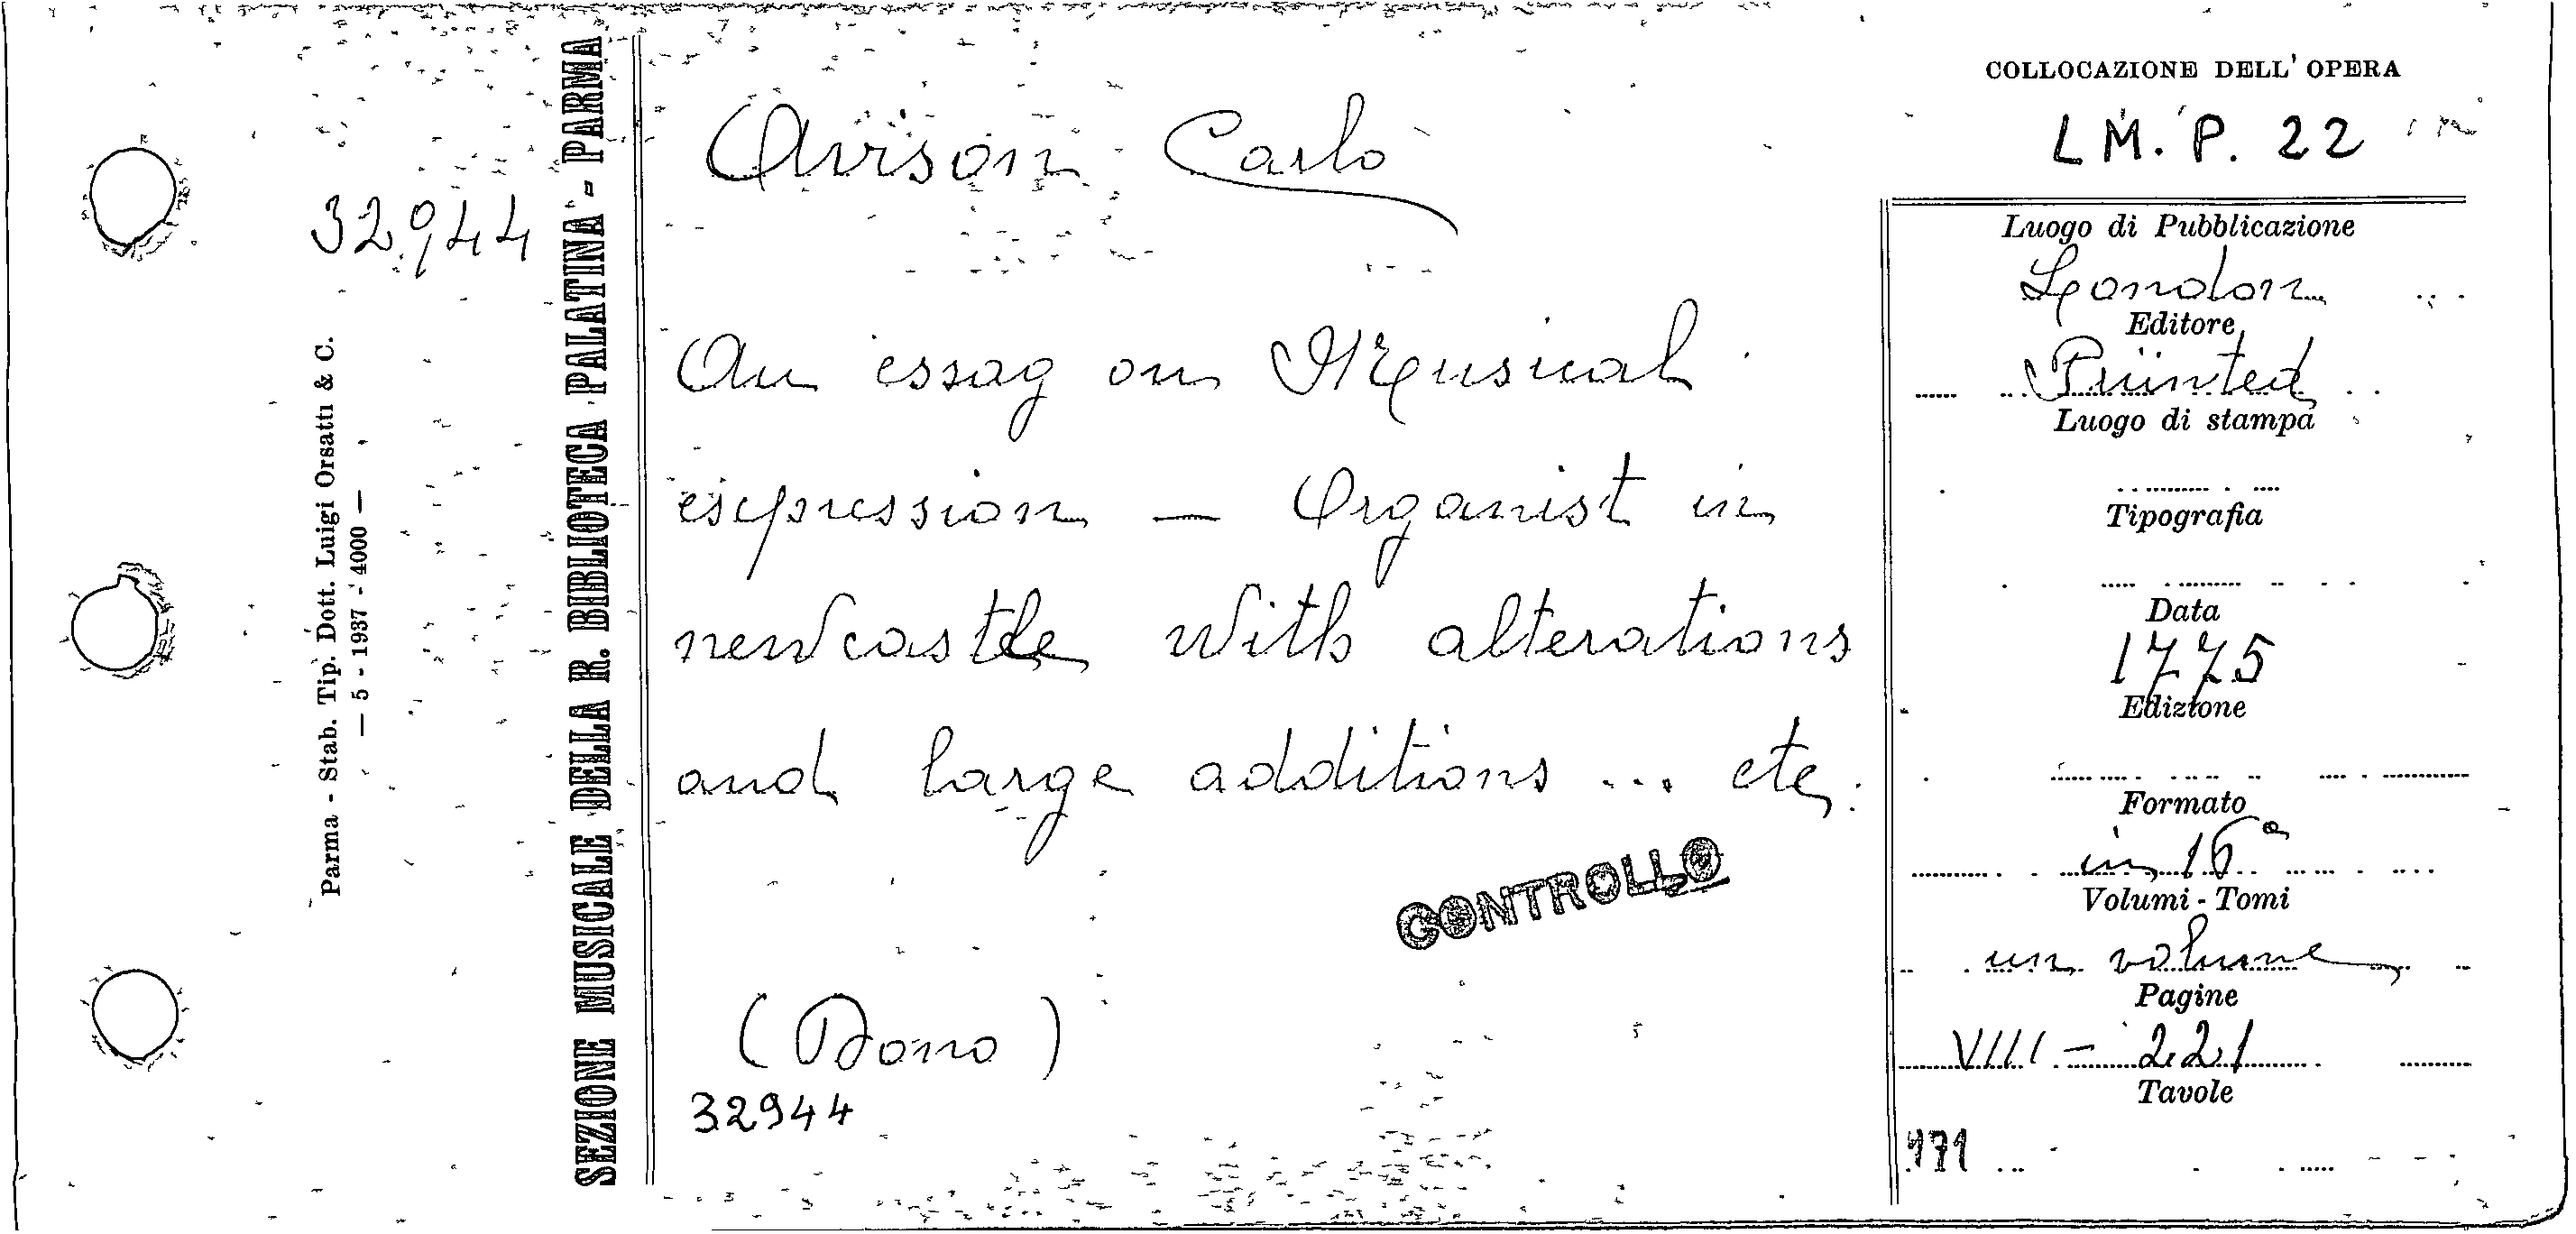 COLLOCAZIONE DELL' OPERA
L M. P. 22
32944
Parma - Stab. Tip. Dott. Luigi Orsatti & C.
— 5 - 1937 - 4000 —
SEZIONE MUSICALE DELLA R. BIBLIOTECA PALATINA - PARMA
Avison Carlo
An essay on Musical
expression — Organist in
newcastle with alterations
and large additions ... etc.
CONTROLLO
(Dono)
32944
Luogo di Pubblicazione
London
Editore
Printed
Luogo di stampa
Tipografia
Data
1775
Edizione
Formato
in 16°
Volumi - Tomi
un volume
Pagine
VIII - 221
Tavole
171